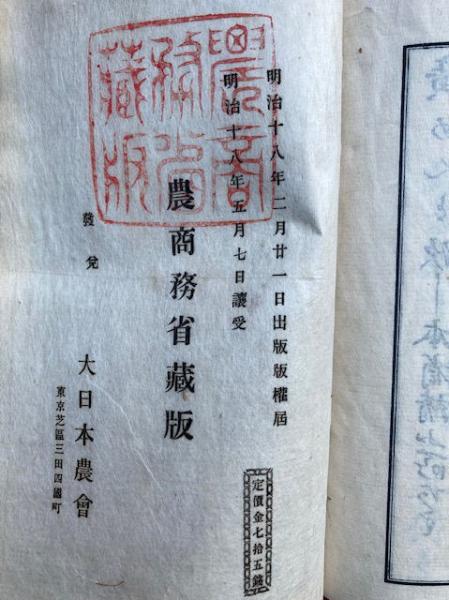 明治十八年二月廿一日出版版權屆
明治十八年五月七日讓受
農商務省藏版
農商務省藏版
發兌
大日本農會
東京芝區三田四國町
定價金七拾五錢